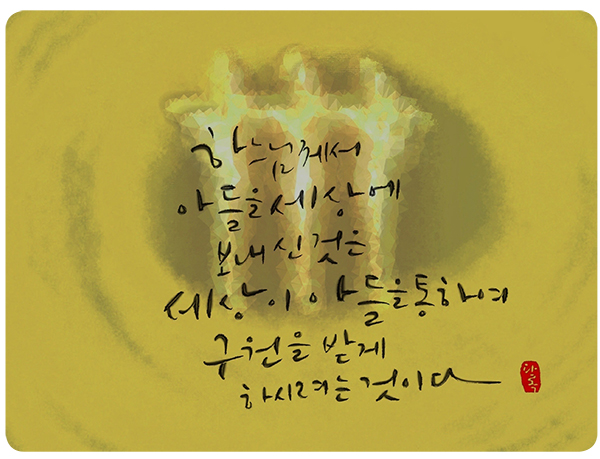 하느님께서
아들을 세상에
보내신 것은
세상이 아들을 통하여
구원을 받게
하시려는 것이다